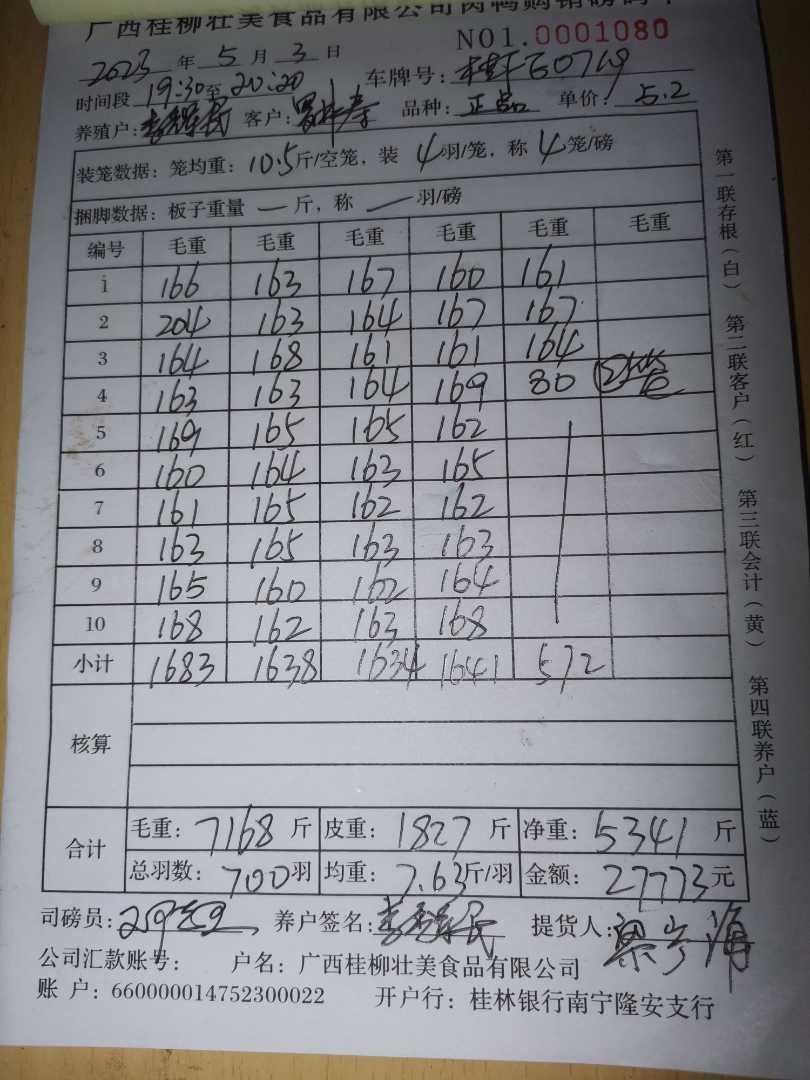 广西桂柳壮美食品有限公司肉鸭购销磅码单
NO1.0001080
2023 年 5 月 3 日
时间段 19:30至20:20 车牌号:
养殖户: 客户: 品种: 正品 单价: 5.2
装笼数据: 笼均重: 10.5斤/空笼, 装 4羽/笼, 称 4笼/磅
捆脚数据: 板子重量 一 斤, 称 一 羽/磅
编号 毛重 毛重 毛重 毛重 毛重 毛重
1 166 163 167 160 161
2 204 163 164 167 167
3 164 168 161 161 164
4 163 163 164 169 80
5 169 165 165 162
6 160 164 163 165
7 161 165 162 162
8 163 165 163 163
9 165 160 162 164
10 168 162 163 168
小计 1683 1638 1634 1641 572
核算
合计 毛重: 7168 斤 皮重: 1827 斤 净重: 5341 斤
总羽数: 700羽 均重: 7.63斤/羽 金额: 27773元
司磅员: 养户签名: 提货人:
公司汇款账号: 户名: 广西桂柳壮美食品有限公司
账 户: 660000014752300022 开户行: 桂林银行南宁隆安支行
第一联存根(白) 第二联客户(红) 第三联会计(黄) 第四联养户(蓝)